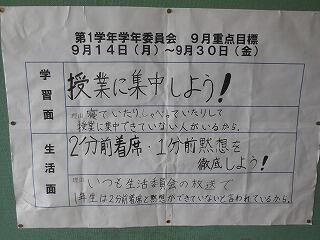 第1学年学年委員会　9月重点目標
9月14日（月）～9月30日（金）
学習面
授業に集中しよう！
理由 寝ていたりしゃべっていたりして
授業に集中できていない人がいるから。
生活面
2分前着席・1分前黙想を
徹底しよう！
理由 いつも生活委員会の放送で
1年生は2分前着席と黙想ができていないと言われているから。